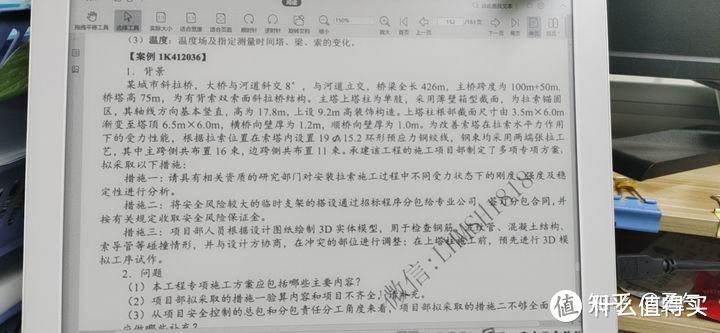 拖拽平移工具 选择工具 实际大小 适合宽度 适合页面 顺时针 逆时针 旋转文档 150% 放大 首页 上一页 152 /183页 下一页 末页 单页
(3)温度:温度场及指定测量时间塔、梁、索的变化。
【案例 1K412036】
1. 背景
某城市斜拉桥,大桥与河道斜交 8°,与河道立交,桥梁全长 426m,主桥跨度为 100m+50m,
桥塔高 75m,为有背索双索面斜拉桥结构。主塔上塔柱为单肢,采用薄壁箱型截面,为拉索锚固
区,其轴线方向基本竖直,高为 17.8m,上设 9.2m 高装饰构造。上塔柱根部截面尺寸由 3.5m×6.0m
渐变至塔顶 6.5m×6.0m,横桥向壁厚为 1.2m,顺桥向壁厚为 1.0m。为改善索塔在拉索水平力作用
下的受力性能,根据拉索位置在索塔内设置 19ϕ15.2 环形预应力钢绞线,钢束均采用两端张拉工
艺,其中主跨侧共布置 16 束,边跨侧共布置 11 束。承建该工程的施工项目部制定了多项专项方案,
拟采取以下措施:
措施一:请具有相关资质的研究部门对安装拉索施工过程中不同受力状态下的刚度、强度及稳
定性进行分析。
措施二:将安全风险较大的临时支架的搭设通过招标程序分包给专业公司,签订分包合同,并
按有关规定收取安全风险保证金。
措施三:项目部人员根据设计图纸绘制 3D 实体模型,用于检查钢筋、波纹管、混凝土结构、
索导管等碰撞情形,并与设计方协商,在冲突的部位进行调整;在上塔柱施工前,预先进行 3D 模
拟工序试作。
2. 问题
(1)本工程专项施工方案应包括哪些主要内容?
(2)项目部拟采取的措施一验算内容和项目不齐全,请补充。
(3)从项目安全控制的总包和分包责任分工角度来看,项目部拟采取的措施二不够全面,
应做哪些补充?
微信:LMJSH1818
值 什么值得买